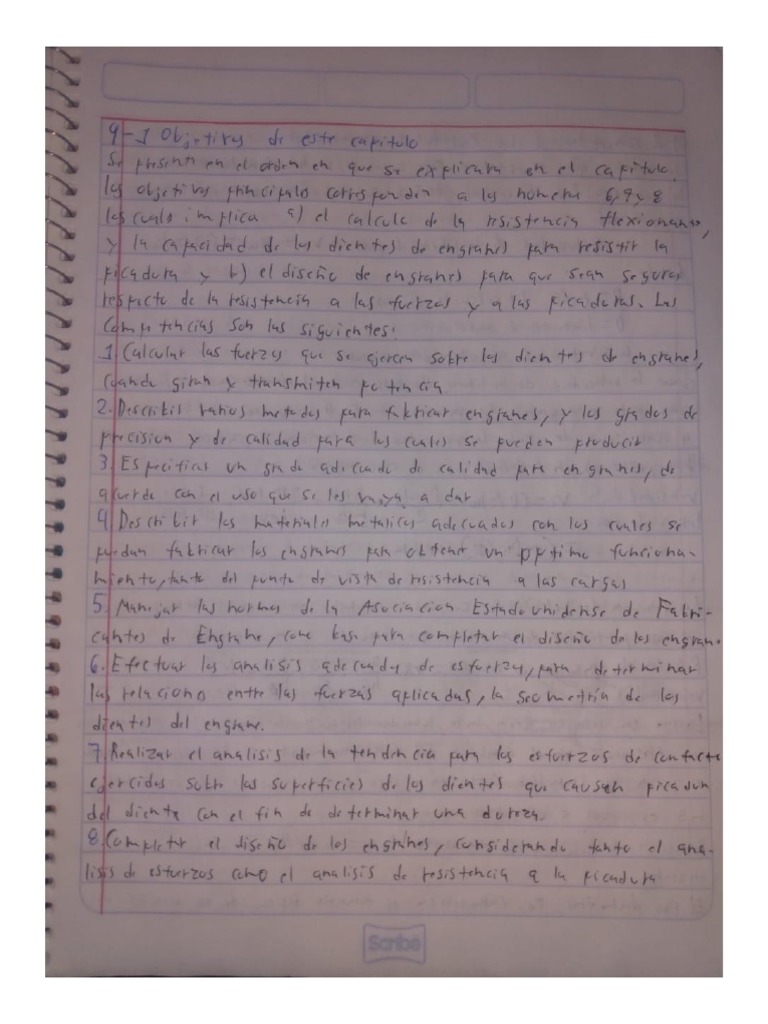 9-1 Objetivos de este capitulo
Se presenta en el orden en que se explicara en el capitulo.
los objetivos principales corresponden a los numeros 6,7 y 8
los cuales implica a) el calculo de la resistencia flexionante,
y la capacidad de los dientes de engranes para resistir la
picadura y b) el diseño de engranes para que sean seguros
respecto de la resistencia a las fuerzas y a las picaduras. Las
Competencias son las siguientes:
1. Calcular las fuerzas que se ejercen sobre los dientes de engranes,
cuando giran y transmiten potencia
2. Describir varios metodos para fabricar engranes, y los grados de
precision y de calidad para los cuales se pueden producir
3. Especificar un grado adecuado de calidad para engranes, de
acuerdo con el uso que se les vaya a dar
4. Describir los materiales metalicos adecuados con los cuales se
puedan fabricar los engranes para obtener un optimo funciona-
miento, tanto del punto de vista de resistencia a las cargas
5. Manejar las normas de la Asociacion Estadounidense de Fabri-
cantes de Engrane, como base para completar el diseño de los engran.
6. Efectuar los analisis adecuados de esfuerzo, para determinar
las relaciones entre las fuerzas aplicadas, la geometria de los
dientes del engrane.
7. Realizar el analisis de la tendencia para los esfuerzos de contacto
ejercidos sobre las superficies de los dientes que causen picadura
del diente con el fin de determinar una dureza.
8. Completar el diseño de los engranes, considerando tanto el ana-
lisis de esfuerzos como el analisis de resistencia a la picadura
Scribe